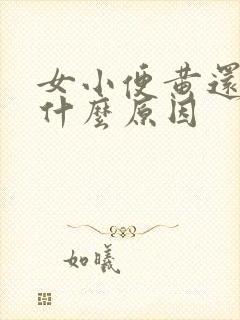 女小便黄還
什麼原因
如曦